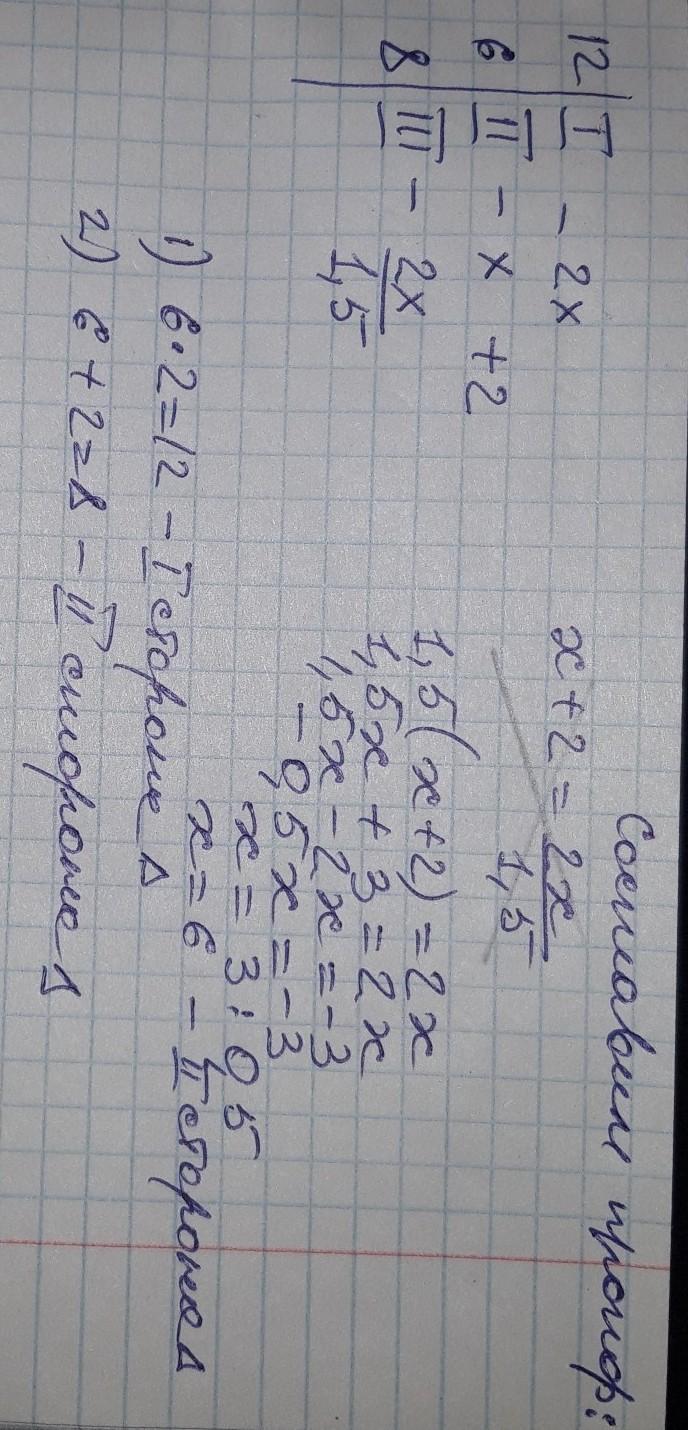 12 | I - 2x
6 | II - x + 2
8 | III - 2x/1,5
Составим пропор:
x + 2 = 2x/1,5
1,5(x+2) = 2x
1,5x + 3 = 2x
1,5x - 2x = -3
-0,5x = -3
x = 3 : 0,5
x = 6 - II сторона Δ
1) 6·2=12 - I сторона Δ
2) 6+2=8 - II сторона Δ